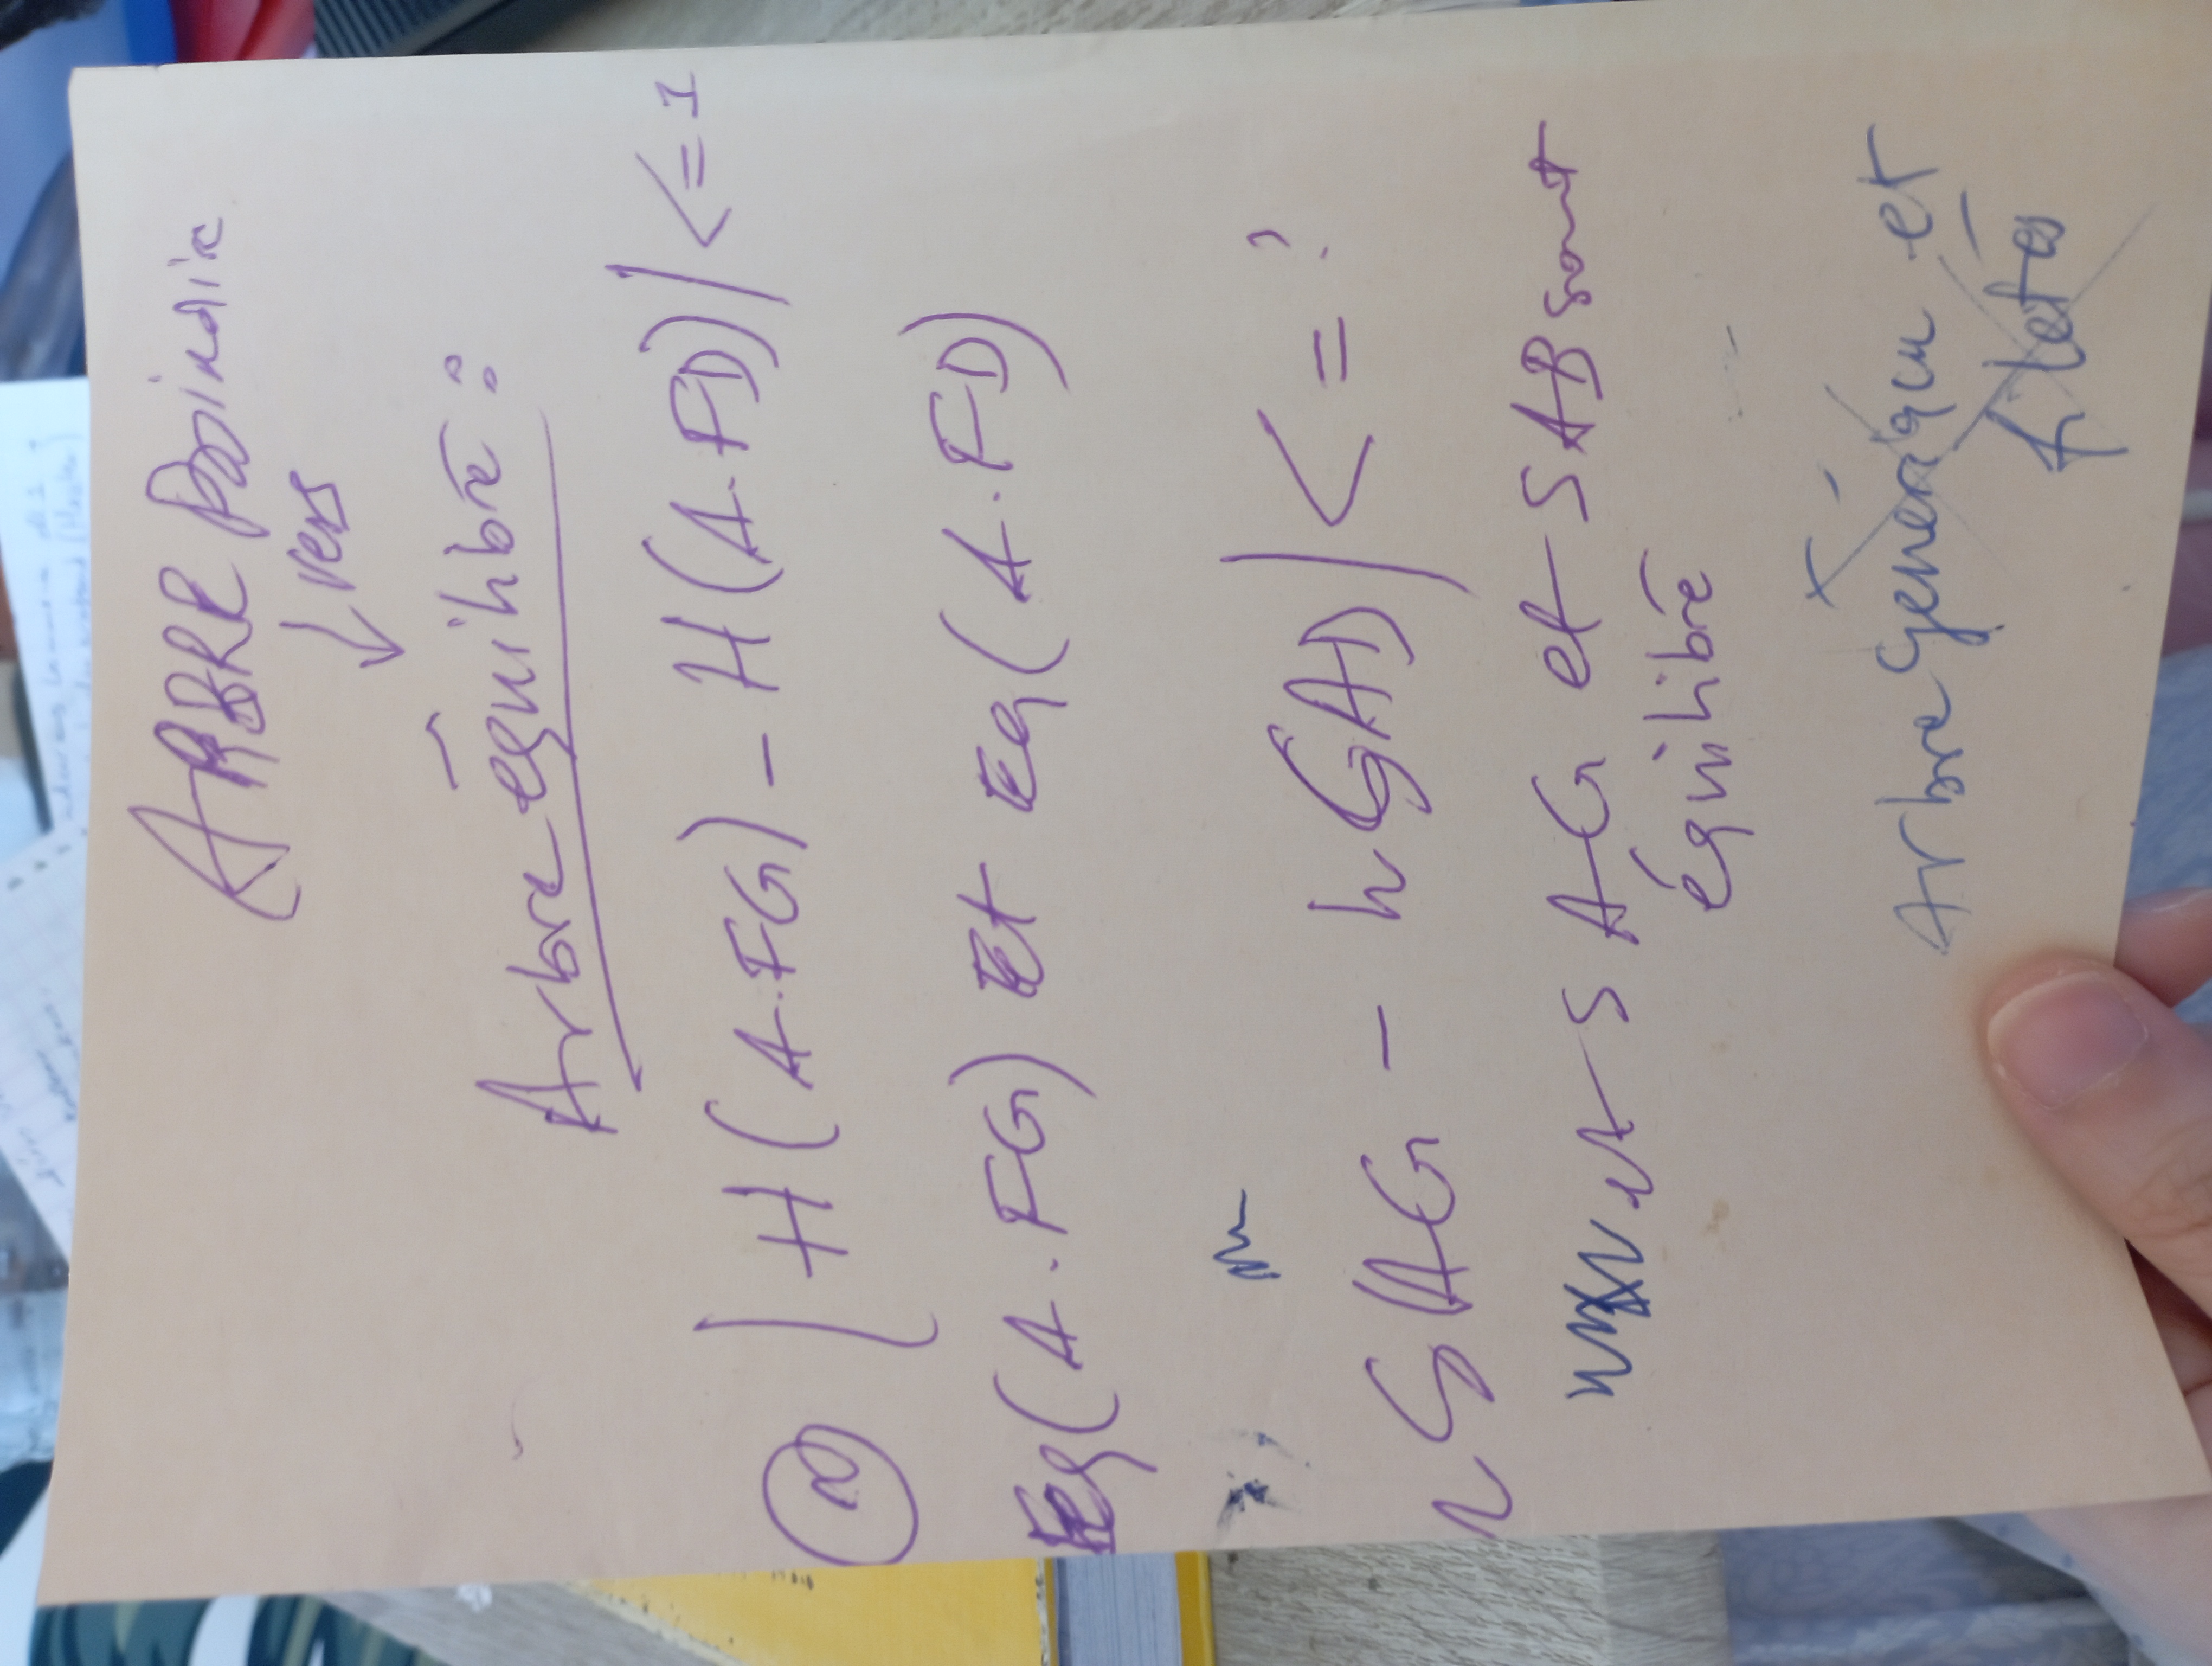 ARBRE
vers
Arbre équilibré :
| H(A.FG) - H(A.FD)| <= 1
Eq(A.FG) Et Eq(A.FD)
h SAG - h SAD| <= ?
et SAG et SAB sont
équilibré
Arbre Générique et
filetés